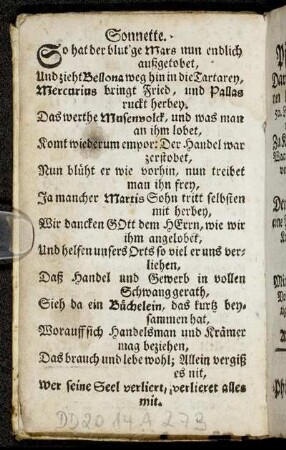 Sonnette.
So hat der blut'ge Mars nun endlich
außgetobet,
Und zieht Bellona weg hin in die Tartarey,
Mercurius bringt Fried, und Pallas
ruckt herbey.
Das werthe Musenvolck, und was man
an ihm lobet,
Komt wiederum empor: Der Handel war
zerstobet,
Nun blüht er wie vorhin, nun treibet
man ihn frey,
Ja mancher Martis Sohn tritt selbsten
mit herbey,
Wir dancken GOtt dem HErrn, wie wir
ihm angelobet,
Und helfen unsers Orts so viel er uns ver-
liehen,
Daß Handel und Gewerb in vollen
Schwang gerath,
Sieh da ein Büchelein, das kurtz bey-
sammen hat,
Worauff sich Handelsman und Krämer
mag beziehen,
Das brauch und lebe wohl; Allein vergiß
es nit,
Wer seine Seel verliert, verlieret alles
mit.
DD20 14 A 273